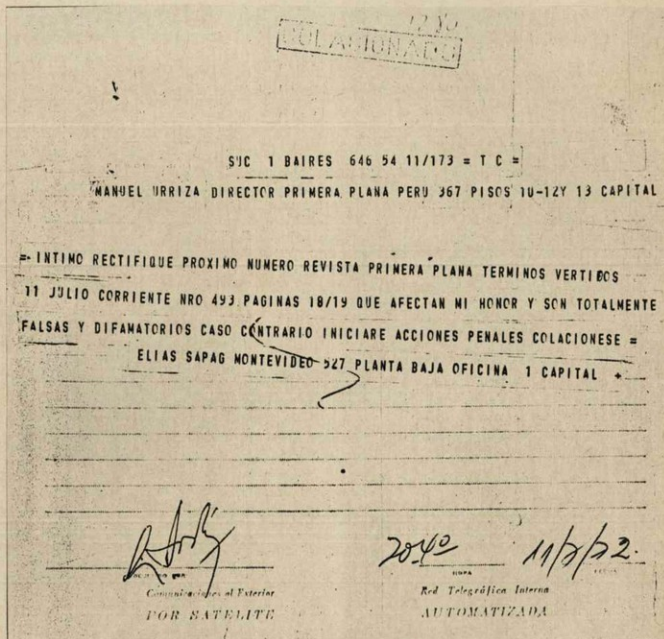 COLACIONADO
SUC 1 BAIRES 646 54 11/173 = T C =
MANUEL URRIZA DIRECTOR PRIMERA PLANA PERU 367 PISOS 10-12Y 13 CAPITAL
=- INTIMO RECTIFIQUE PROXIMO NUMERO REVISTA PRIMERA PLANA TERMINOS VERTIDOS
11 JULIO CORRIENTE NRO 493 PAGINAS 18/19 QUE AFECTAN MI HONOR Y SON TOTALMENTE
FALSAS Y DIFAMATORIOS CASO CONTRARIO INICIARE ACCIONES PENALES COLACIONESE =
ELIAS SAPAG MONTEVIDEO 527 PLANTA BAJA OFICINA 1 CAPITAL +
2040 11/7/72.
POR
HORA
Comunicaciones al Exterior
Red Telegráfica Interna
POR SATELITE
AUTOMATIZADA